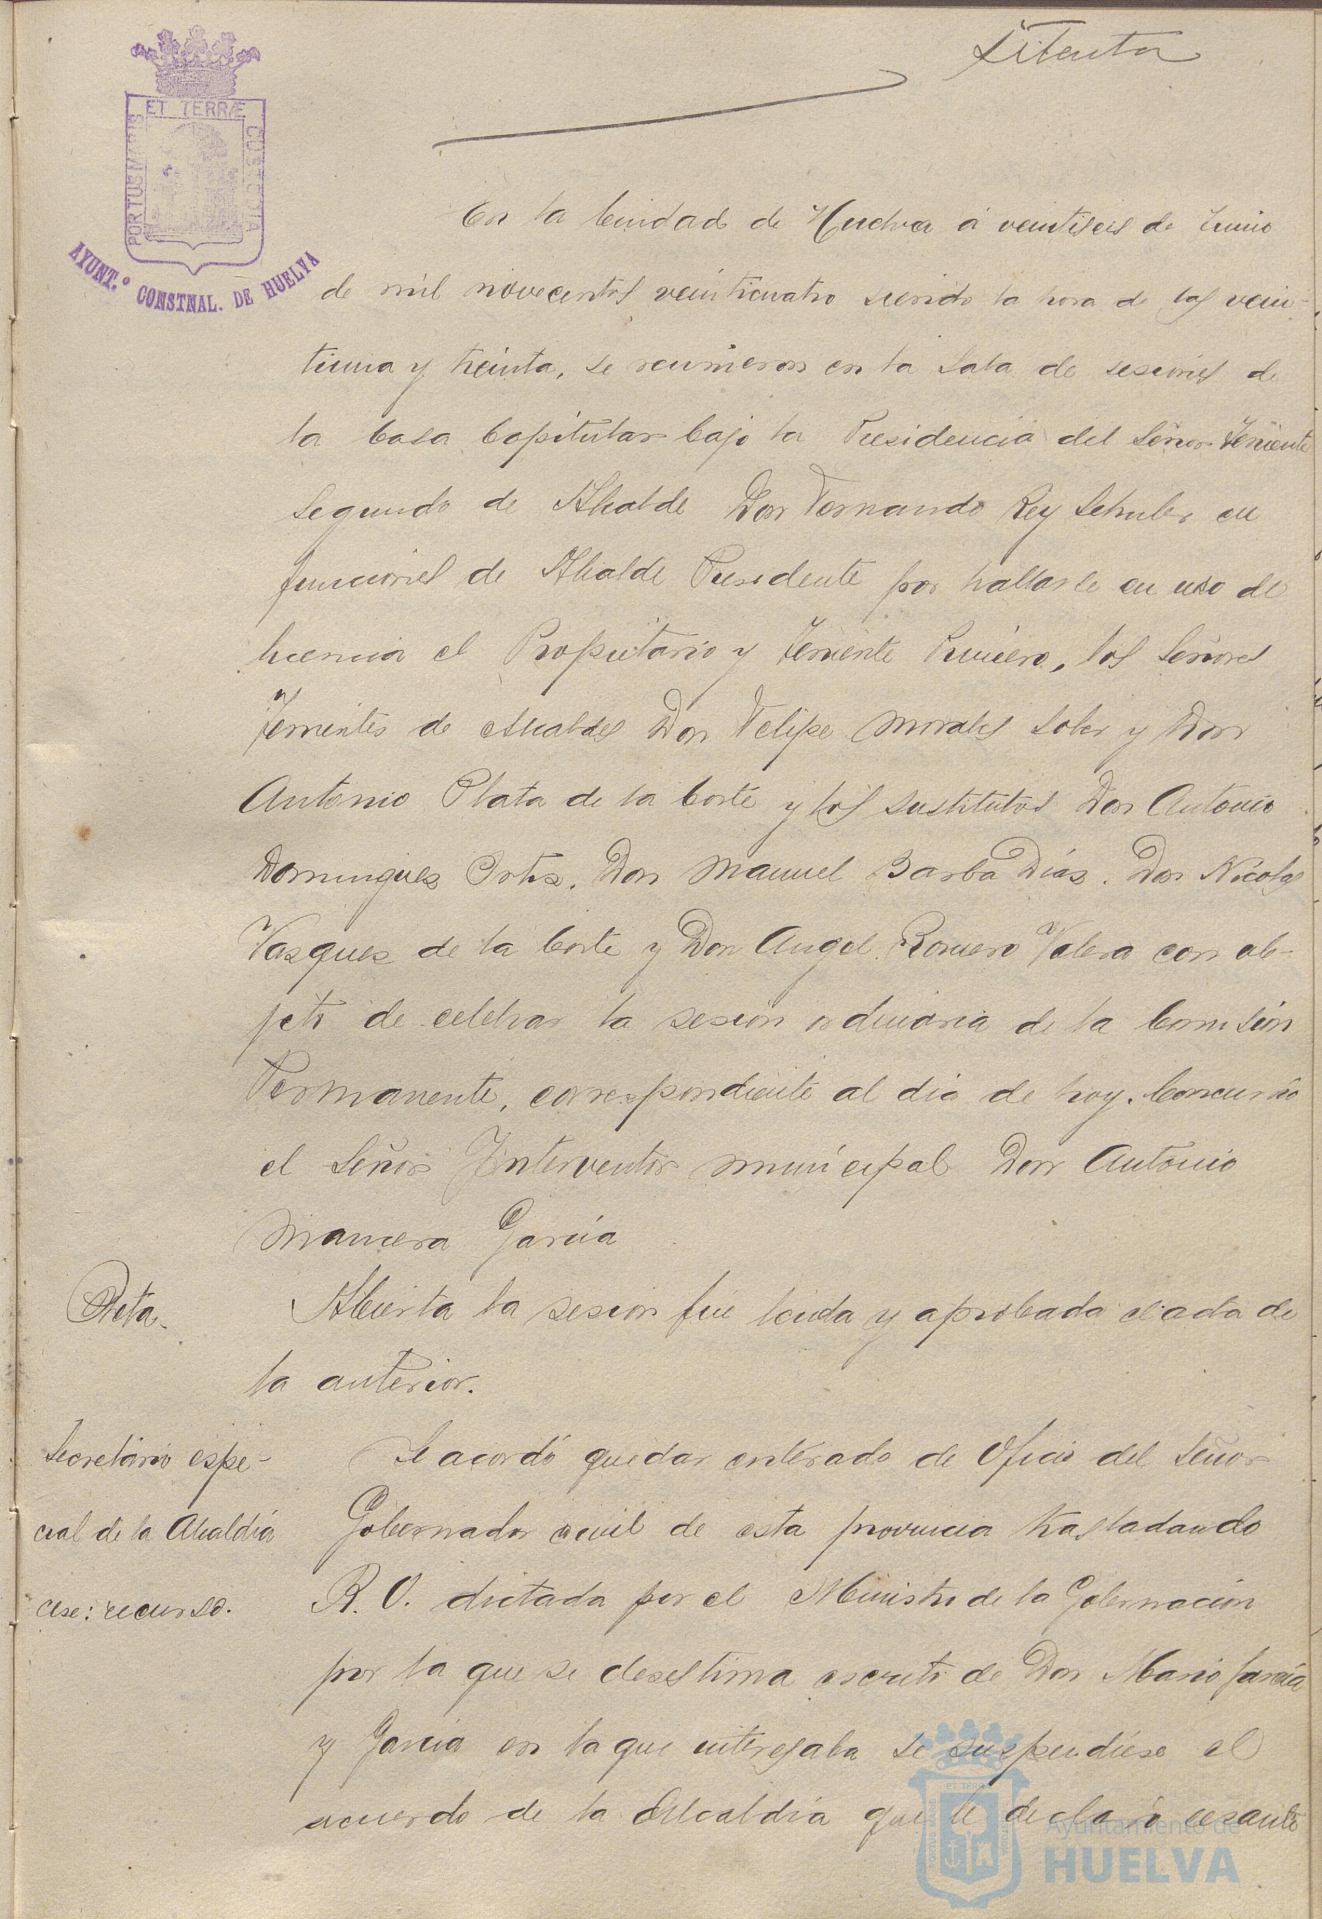 Setenta
ET TERRÆ
PORTUS MARIS
CUSTODIA
AYUNT.º CONSTNAL. DE HUELVA
En la Ciudad de Huelva á veintiseis de Junio
de mil novecientos veinticuatro siendo la hora de las vein-
tiuna y treinta, se reunieron en la Sala de sesiones de
la Casa Capitular bajo la Presidencia del Señor Teniente
Segundo de Alcalde Don Fernando Rey Schuler en
funciones de Alcalde Presidente por hallarse en uso de
licencia el Propietario y Teniente Primero, los Señores
Tenientes de Alcaldes Don Felipe Morales Soler y Don
Antonio Plata de la Corte y los sustitutos Don Antonio
Domingues Ortiz. Don Manuel Barba Días. Don Nicolas
Vasques de la Corte y Don Angel Romero Valera con ob-
jeto de celebrar la sesion ordinaria de la Comisión
Permanente, correspondiente al dia de hoy. Concurrió
el Señor Interventor municipal Don Antonio
Mancera García
Acta.
Abierta la sesion fue leida y aprobada el acta de
la anterior.
Secretario espe-
cial de la Alcaldía
cese: recurso.
Se acordó quedar enterado de Oficio del Señor
Gobernador civil de esta provincia trasladando
R. O. dictada por el Ministro de la Gobernación
por la que se desestima escrito de Don Mario García
y García en la que interesaba se suspendiese el
acuerdo de la Alcaldía que le declaró cesante
Ayuntamiento de
HUELVA